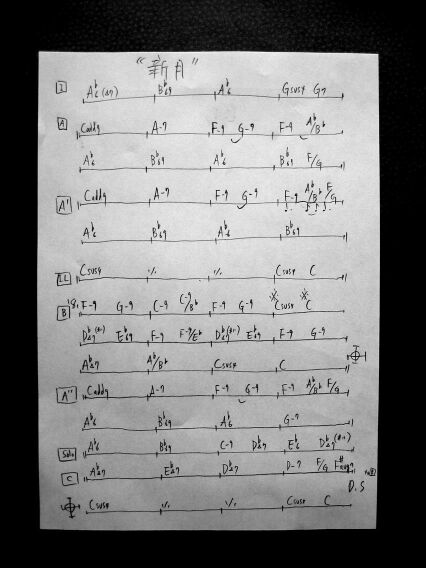 "新月"
I A♭6(Δ7) B♭69 A♭6 Gsus4 G7
A Cadd9 A-7 F-9 G-9 F-9 A♭/B♭
A♭6 B♭69 A♭6 B♭69 F/G
A' Cadd9 A-7 F-9 G-9 F-9 A♭/B♭ F/G
A♭6 B♭69 A♭6 B♭69
Csus4 ٪ ٪ Csus4 C
B F-9 G-9 C-9 C-9/B♭ F-9 G-9 Csus4 C
D♭Δ7(#11) E♭69 F-9 F-9/E♭ D♭Δ7(#11) E♭69 F-9 G-9
A♭Δ7 A♭/B♭ Csus4 C
A'' Cadd9 A-7 F-9 G-9 F-9 A♭/B♭ F/G
A♭6 B♭69 A♭6 G-7
Solo A♭6 B♭69 C-7 D♭Δ7 E♭6 D♭Δ7(#11)
C A♭Δ7 E♭Δ7 D♭Δ7 D-7 F/G
D.S
Csus4 ٪ ٪ Csus4 C